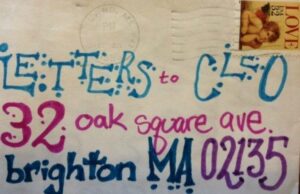 LETTERS to CLEO
LOVE
32
32 oak square ave.
brighton MA 02135